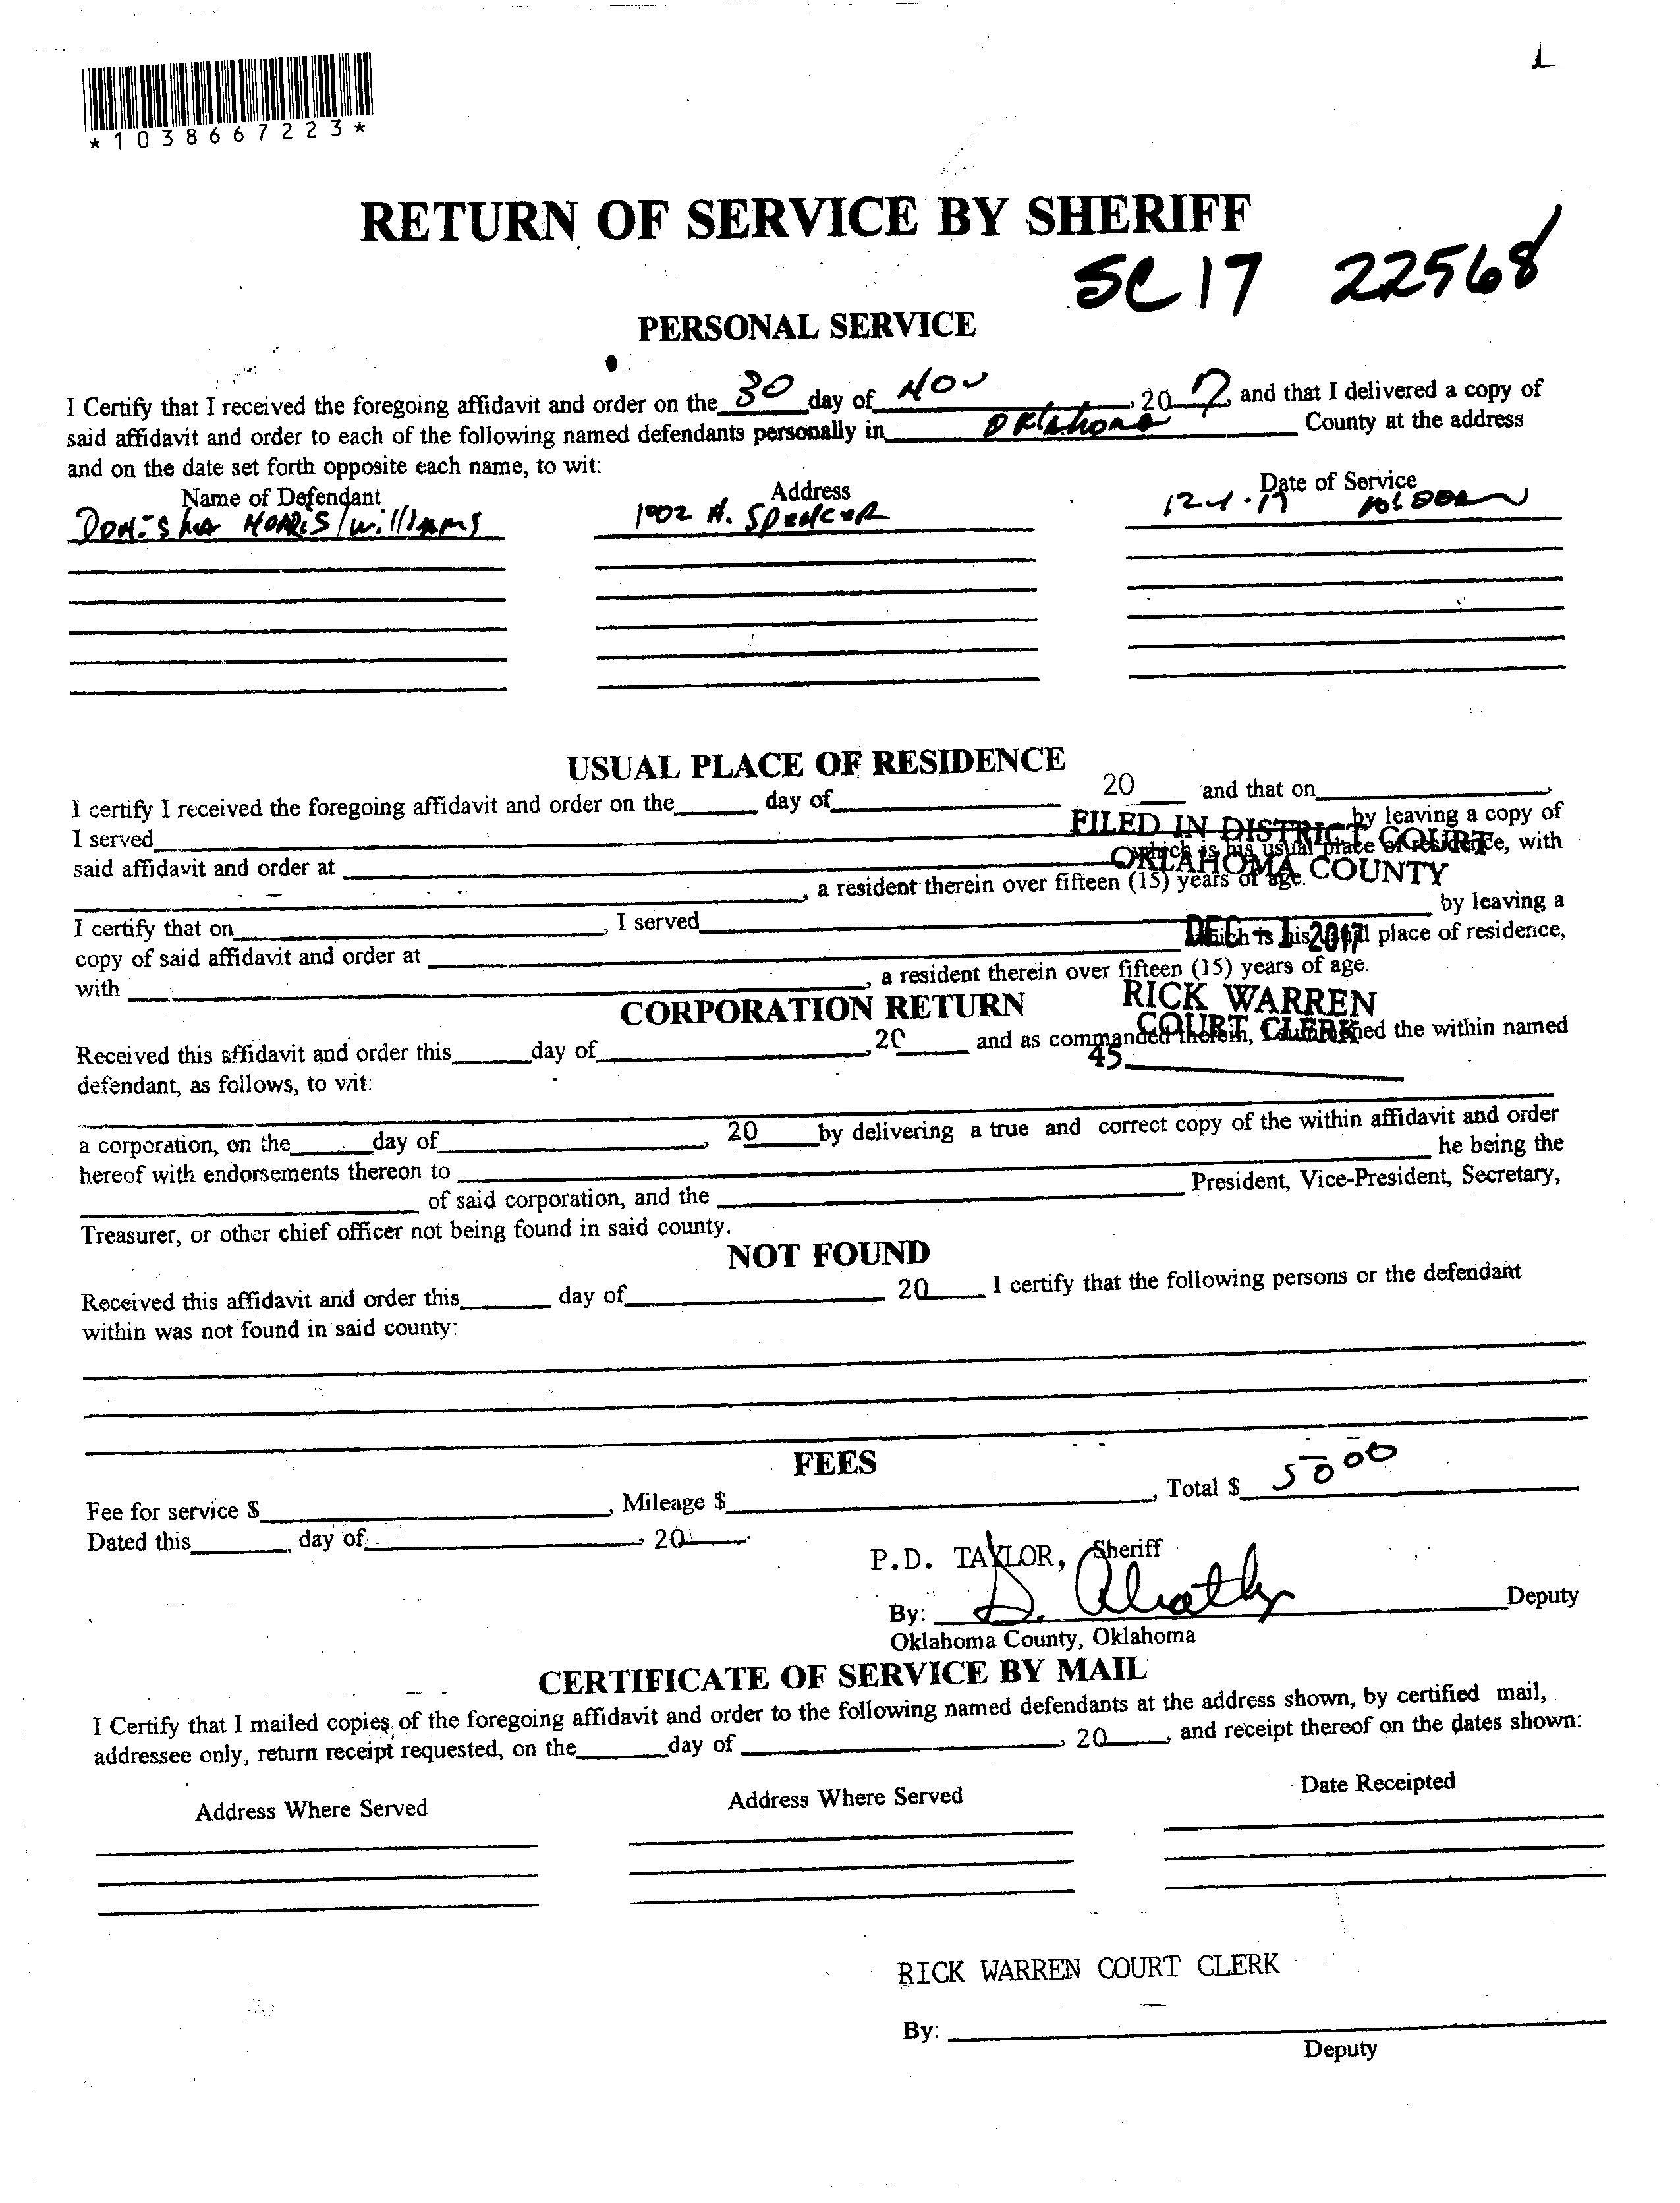 1
*1038667223*
RETURN OF SERVICE BY SHERIFF
SC 17 22568
PERSONAL SERVICE
I Certify that I received the foregoing affidavit and order on the 30 day of NOV, 2017, and that I delivered a copy of
said affidavit and order to each of the following named defendants personally in Oklahoma County at the address
and on the date set forth opposite each name, to wit:
Name of Defendant Address Date of Service
/Williams 1002 N. Spencer 12-1-17
USUAL PLACE OF RESIDENCE
I certify I received the foregoing affidavit and order on the____ day of____ 20__ and that on____,
I served____ by leaving a copy of
FILED IN DISTRICT COURT
said affidavit and order at ____ which is his usual place of residence, with
OKLAHOMA COUNTY
____, a resident therein over fifteen (15) years of age.
I certify that on____, I served____ by leaving a
DEC - 1 2017
copy of said affidavit and order at ____ which is his usual place of residence,
with ____, a resident therein over fifteen (15) years of age.
RICK WARREN
CORPORATION RETURN
COURT CLERK
Received this affidavit and order this____day of____, 20____ and as commanded therein, I summoned the within named
45____
defendant, as follows, to wit:
a corporation, on the____day of____, 20____by delivering a true and correct copy of the within affidavit and order
hereof with endorsements thereon to ____ he being the
____ of said corporation, and the ____ President, Vice-President, Secretary,
Treasurer, or other chief officer not being found in said county.
NOT FOUND
Received this affidavit and order this____ day of____ 20____ I certify that the following persons or the defendant
within was not found in said county:
FEES
Fee for service $____, Mileage $____, Total $ 50 00
Dated this____ day of____, 20____.
P.D. TAYLOR, Sheriff
By: D. ____Deputy
Oklahoma County, Oklahoma
CERTIFICATE OF SERVICE BY MAIL
I Certify that I mailed copies of the foregoing affidavit and order to the following named defendants at the address shown, by certified mail,
addressee only, return receipt requested, on the____day of ____, 20____, and receipt thereof on the dates shown:
Address Where Served Address Where Served Date Receipted
RICK WARREN COURT CLERK
By: ____
Deputy